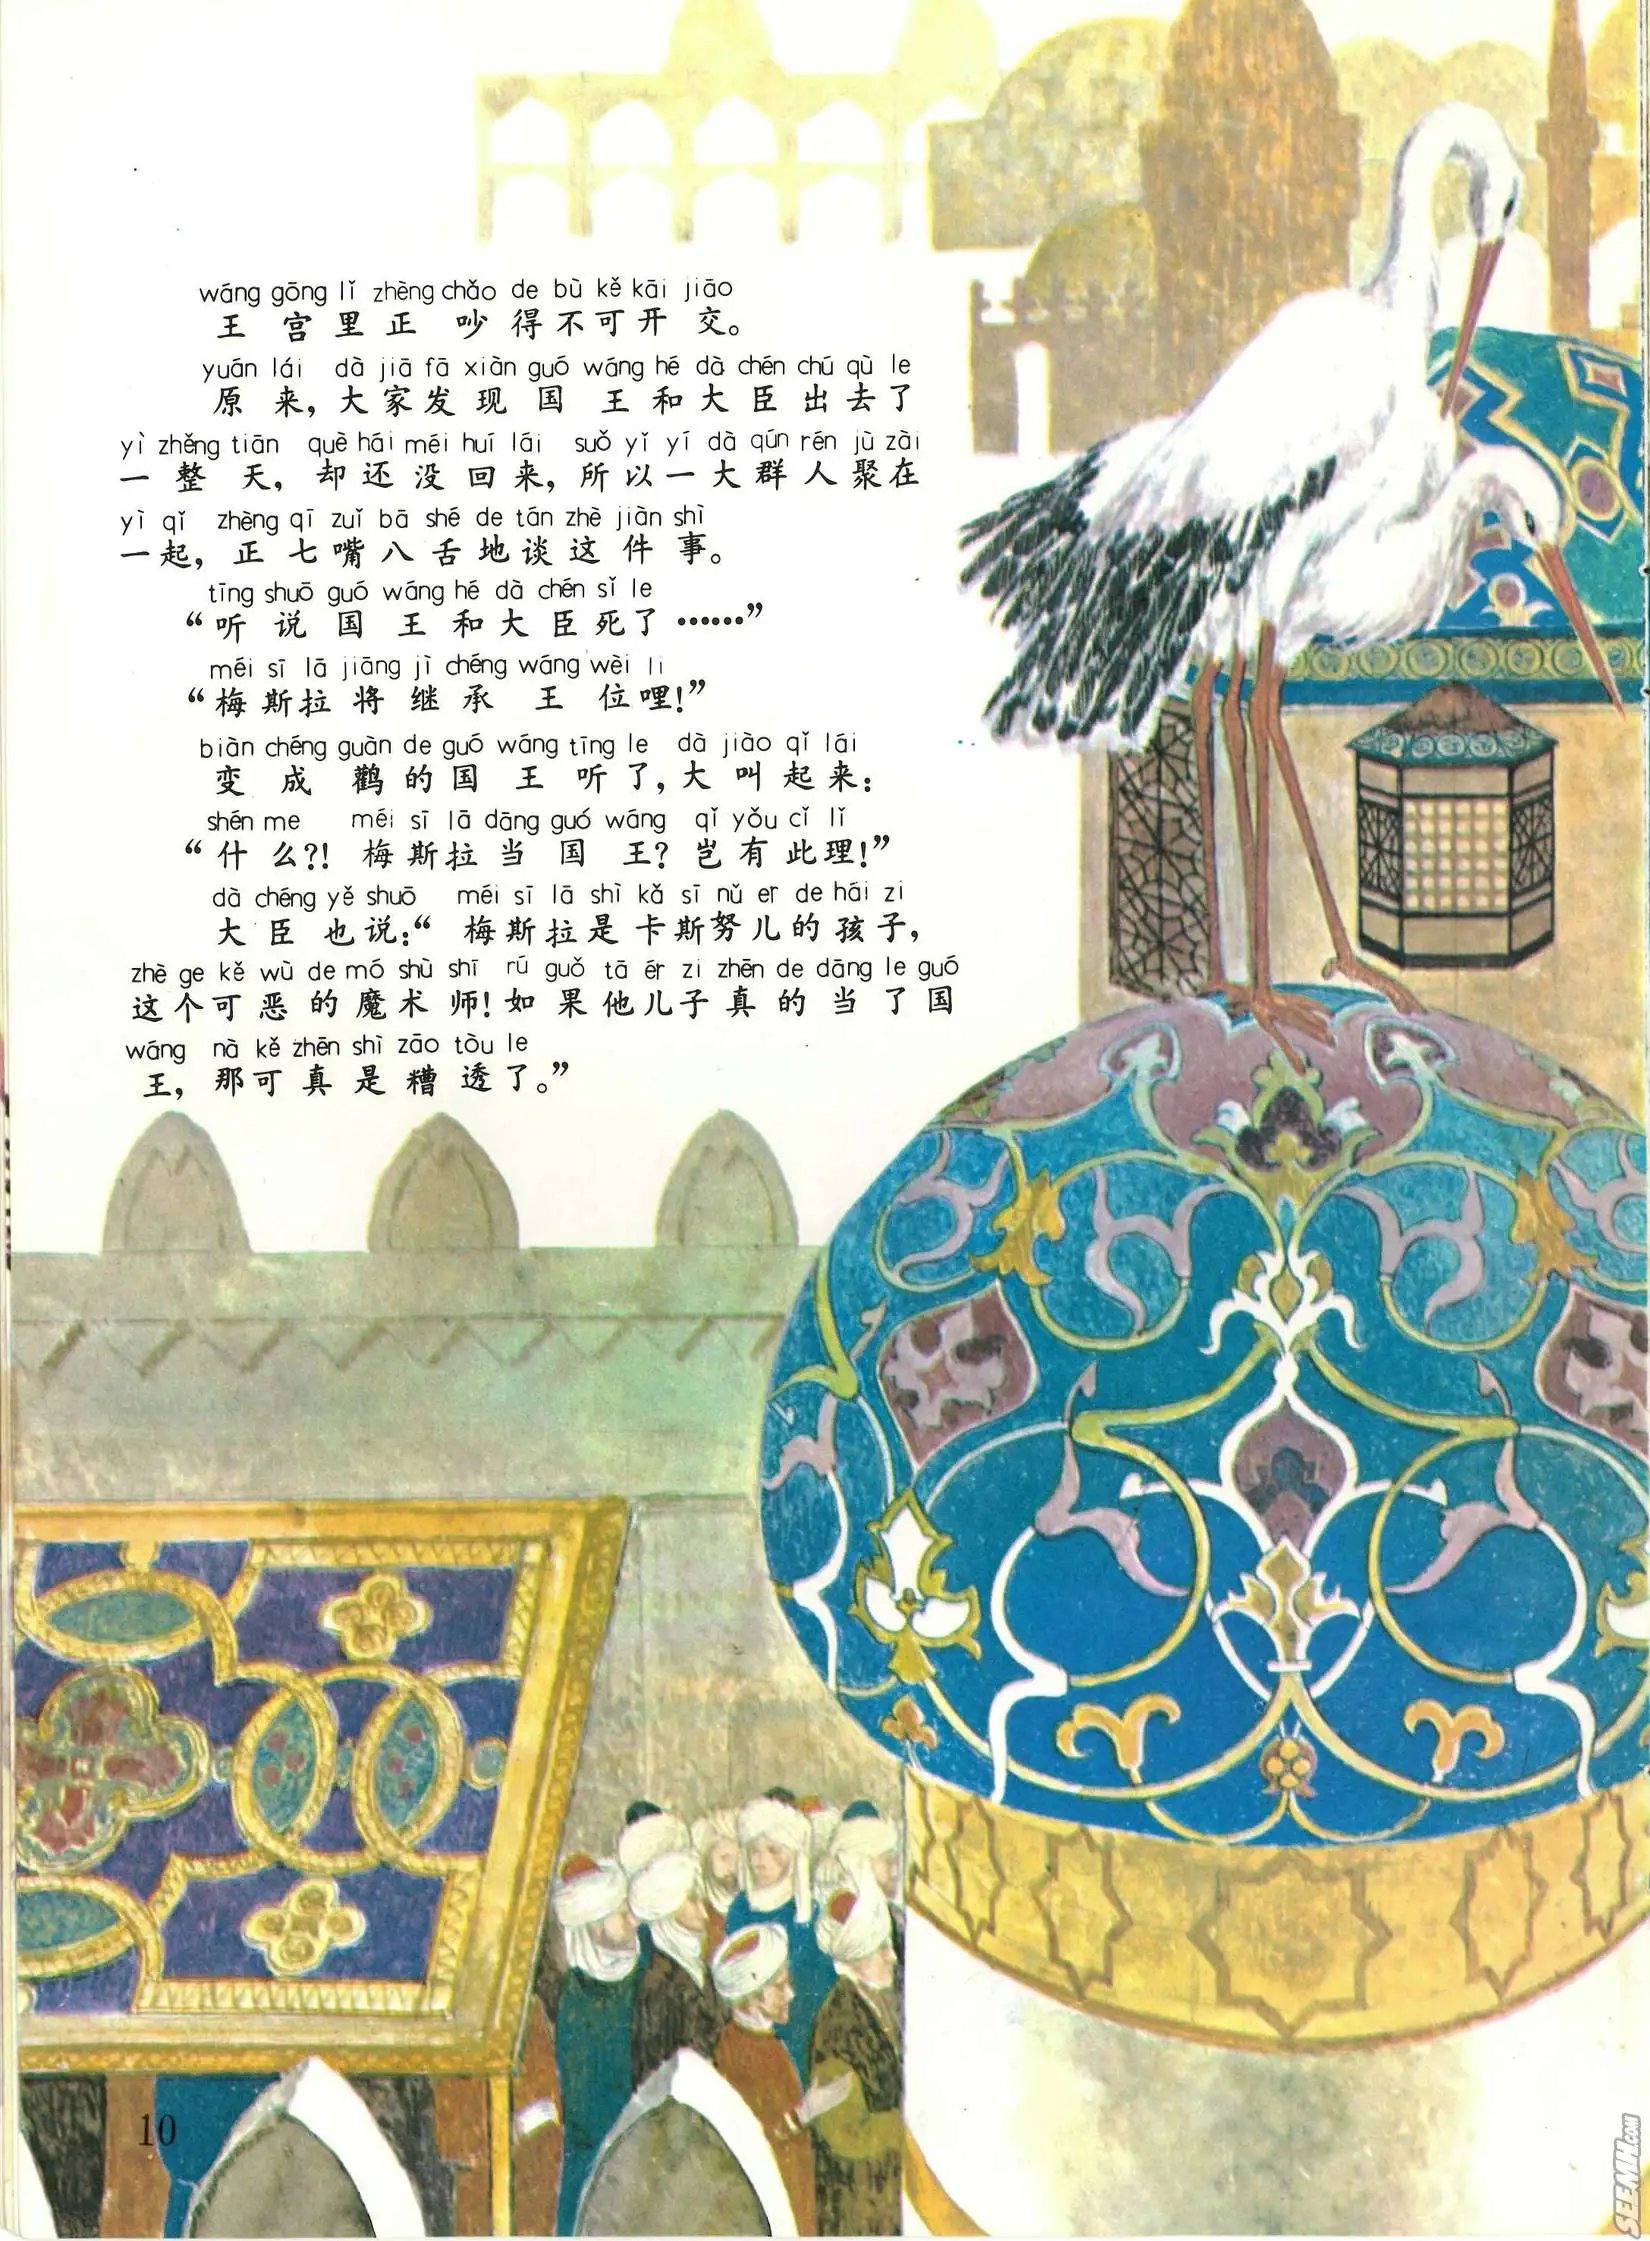 wáng gōng lǐ zhèng chǎo de bù kě kāi jiāo
王宫里正吵得不可开交。
yuán lái dà jiā fā xiàn guó wáng hé dà chén chú qù le
原来，大家发现国王和大臣出去了
yì zhěng tiān què hái méi huí lái suǒ yǐ yí dà qún rén jù zài
一整天，却还没回来，所以一大群人聚在
yì qǐ zhèng qī zuǐ bā shé de tán zhè jiàn shì
一起，正七嘴八舌地谈这件事。
tīng shuō guó wáng hé dà chén sǐ le
“听说国王和大臣死了……”
méi sī lā jiāng jì chéng wáng wèi li
“梅斯拉将继承王位哩！”
biàn chéng guàn de guó wáng tīng le dà jiào qǐ lái
变成鹳的国王听了，大叫起来：
shén me méi sī lā dāng guó wáng qǐ yǒu cǐ lǐ
“什么？！梅斯拉当国王？岂有此理！”
dà chéng yě shuō méi sī lā shì kǎ sī nǔ er de hái zi
大臣也说：“梅斯拉是卡斯努儿的孩子，
zhè ge kě wù de mó shù shī rú guǒ tā ér zi zhēn de dāng le guó
这个可恶的魔术师！如果他儿子真的当了国
wáng nà kě zhēn shì zāo tòu le
王，那可真是糟透了。”
10
SEEMH.COM